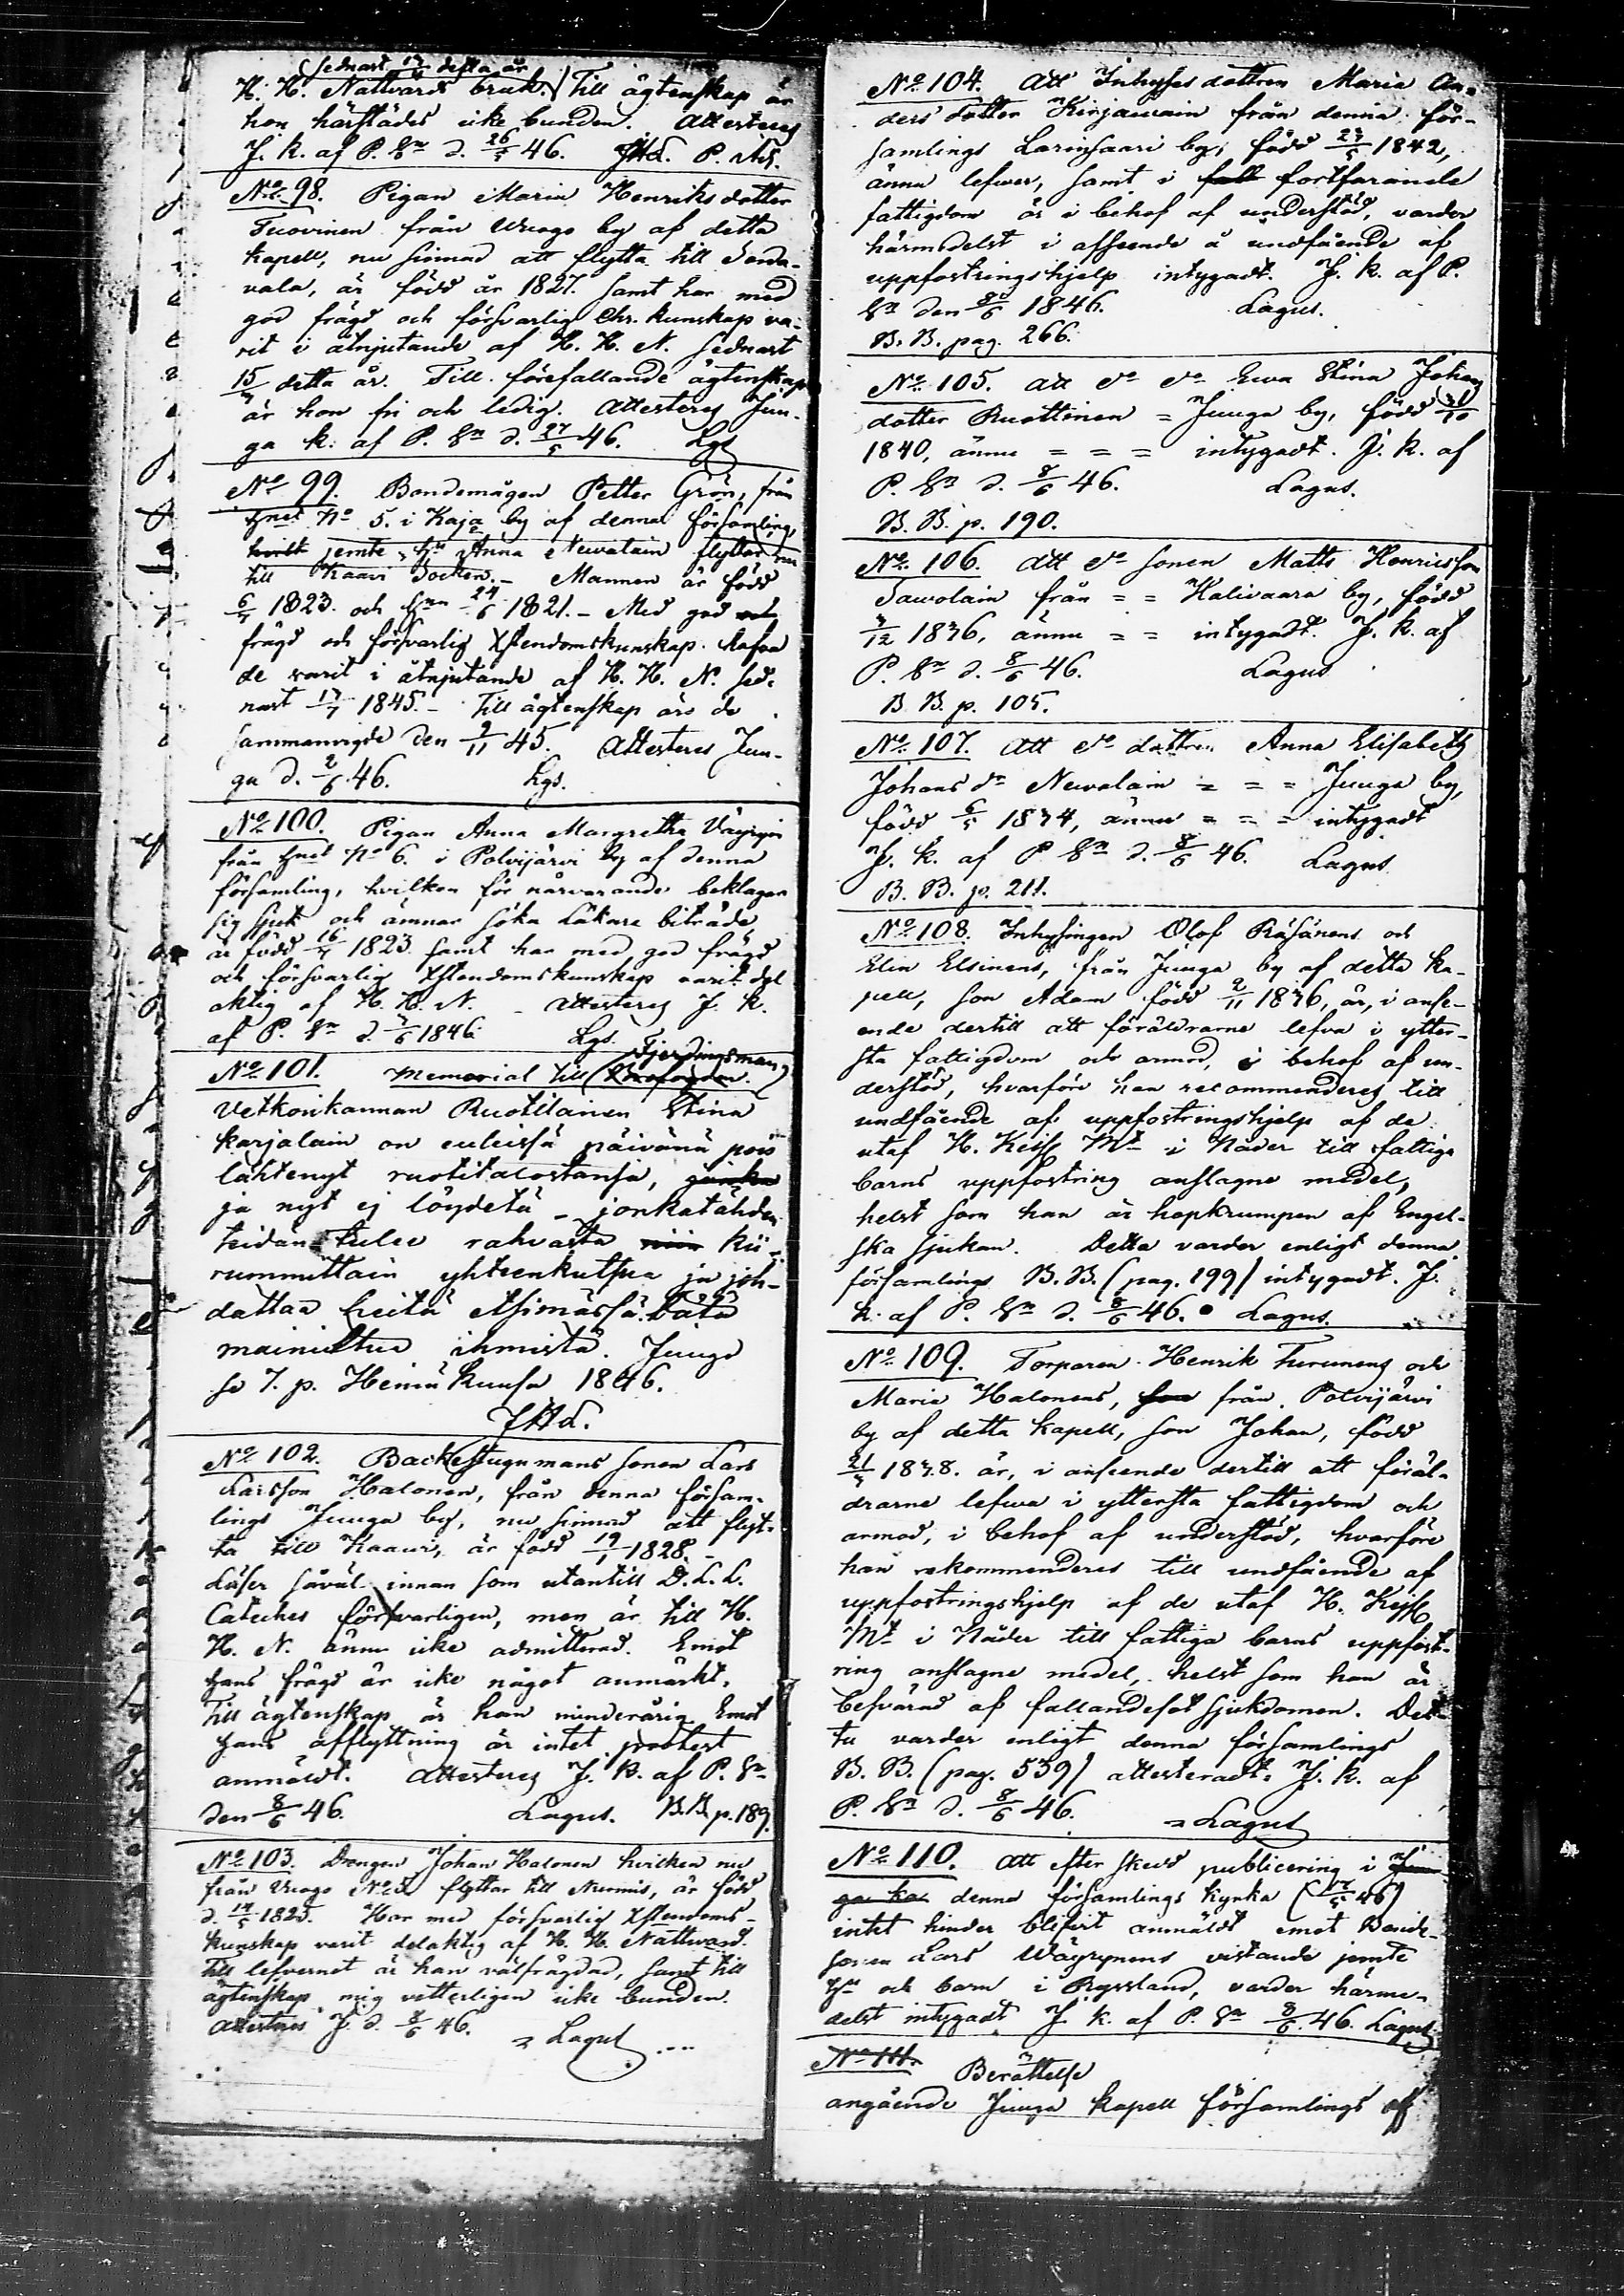 sednast 17/5 detta år
H. H. Nattvards bruk. Till ägtenskap är
hon härstädes icke bunden. Attesteras
J. K. af P. Sn d. 26/5 46. JHL. P. Adj.
No 98. Pigan Maria Henriksdotter
Tuovinen från Wuogo by af detta
kapell, nu sinnad att flytta till Sorda-
vala, är född år 1827. samt har med
god frägd och försvarlig Chr. kunskap va-
rit i åtnjutande af H. H. N. sednast
15/3 detta år. Till förefallande ägtenskap
är hon fri och ledig. Attesteras Juu-
ga k. af P. Sn d. 27/5 46. Lgs
No 99. Bondemågen Petter Grön, från
hmet No 5. i Kaja by af denna församling,
hvilk jemte hu Anna Newalain flyttar nu
till Kaavi Socken. – Mannen är född
6/4 1823. och hun 24/6 1821. – Med god och
frägd och försvarlig Xstendomskunskap hafva
de varit i åtnjutande af H. H. N. sed-
nast 17/7 1845. – Till ägtenskap äro de
sammanvigde den 9/11 45. Attesteras Juu-
ga d. 2/6 46. Lgs.
No 100. Pigan Anna Margretha Väyrynin
från hmet No 6. i Polvijärvi by af denna
församling, hvilken för närvarande beklagar
sig sjuk och ämnar söka Läkare biträde,
är född 16/4 1823 samt har med god frägd
och försvarlig Xstendomskunskap varit del
aktig af H. H. N. – Attesteras J. K.
af P. Sn d. 7/6 1846. Lgs.
No 101. Memorial till Fjerdingsman
Vetkonkannan Ruotilainen Stina
karjalain on euleissä päivänä pois
lähtenyt ruotitalostansa, jonka
ja nyt ej löydetä – jonkatähden
teidän tulee rahvasta niin kii-
rummittain yhteenkutsua ja joh-
dattaa heitä etsimässä tätä
mainittua ihmistä. Juuga
se 7. p. Heinä Kuusa 1846.
JHL.
No 102. Backstugumans sonen Lars
Larsson Halonen, från denna försam-
lings Juuga by, nu sinnad att flyt-
ta till Kaawi, är född 19/1 1828. –
Läser såväl innan som utantill D. L. L.
Cateches försvarligen, men är till H.
H. N. ännu icke admitterad. Emot
hans frägd är icke något anmärkt.
Till ägtenskap är han minderårig. Emot
hans afflyttning är intet protest
anmäldt. Attesteras J. K. af P. Sn
den 8/6 46. Lagus. B.B. p. 189.
No 103. Drengen Johan Halonen hvilken nu
från Vuogo No 3 flyttar till Nurmis, är född
d. 14/5 1825. Har med försvarlig Xstendoms-
kunskap varit delaktig af H. H. Nattward.
Till lefvernet är han välfrägdad, samt till
ägtenskap mig vitterligen icke bunden.
Attesteras J. d. 8/6 46. Lagus
No 104. Att Inhyses dottren Maria An-
ders dotter Kirjawain från denna för-
samlings Larinsaari by, född 23/5 1842,
ännu lefwer, samt i fatt fortfarande
fattigdom är i behof af understöd, varder
härmedelst i afseende å undfående af
uppfostringshjelp intygadt. J. K. af P.
Sn den 8/6 1846. Lagus.
B. B. pag. 266.
No 105. Att do do Ewa Stina Johans
dotter Ruottinen = Juuga by, född 31/10
1840, ännu = = = intygadt. J. K. af
P. Sn d. 8/6 46. Lagus.
B. B. p. 190.
No 106. Att do sonen Matts Henricsson
Sawolain från = = Halivaara by, född
3/12 1836, ännu = = intygadt. J. K. af
P. Sn d. 8/6 46. Lagus
B. B. p. 105.
No 107. Att do dottren Anna Elisabeth
Johans dr Newalain = = = Juuga by,
född 6/5 1834, ännu = = = intygadt
J. K. af P Sn d. 8/6 46. Lagus
B. B. p. 211.
No 108. Inhysingen Olof Räsänens och
Elin Elsinens, från Juuga by af detta ka-
pell, son Adam född 2/11 1836, är, i anse-
ende dertill att föräldrarne lefva i ytter-
sta fattigdom och armod, i behof af un-
derstöd, hvarföre han recommenderas till
undfående af uppfostringshjelp af de
utaf H. Kejs Mt i Nåder till fattiga
barns uppfostring anslagne medel,
helst som han är hopkrumpen af Engel-
ska sjukan. Detta varder enligt denna
församlings B. B. (pag. 199) intygadt. J.
K. af P. Sn d. 8/6 46. Lagus.
No 109. Torparen Henrik Turunens och
Maria Halonens, son från Polvijärvi
by af detta kapell, son Johan, född
21/3 1838. är, i anseende dertill att föräl-
drarne lefwa i yttersta fattigdom och
armod, i behof af understöd, hvarföre
han rekommenderas till undfående af
uppfostringshjelp af de utaf H. Kejs
Mt i Nåder till fattiga barns uppfost-
ring anslagne medel, helst som han är
besvärad af fallandesot sjukdomen. Det-
ta varder enligt denna församlings
B. B. (pag. 539) attesteradt. J. K. af
P. Sn d. 8/6 46. Lagus
No 110. Att efter skedd publicering i Juu-
ga ka denna församlings kyrka (17/5 46)
intet hinder blifvit anmäldt emot Bonde-
sonen Lars Wäyrynens vistande jemte
hu och barn i Ryssland, varder härme-
delst intygadt J. K. af P. Sn 8/6 46. Lagus
No 111. Berättelse
angående Juuga kapell församlings af